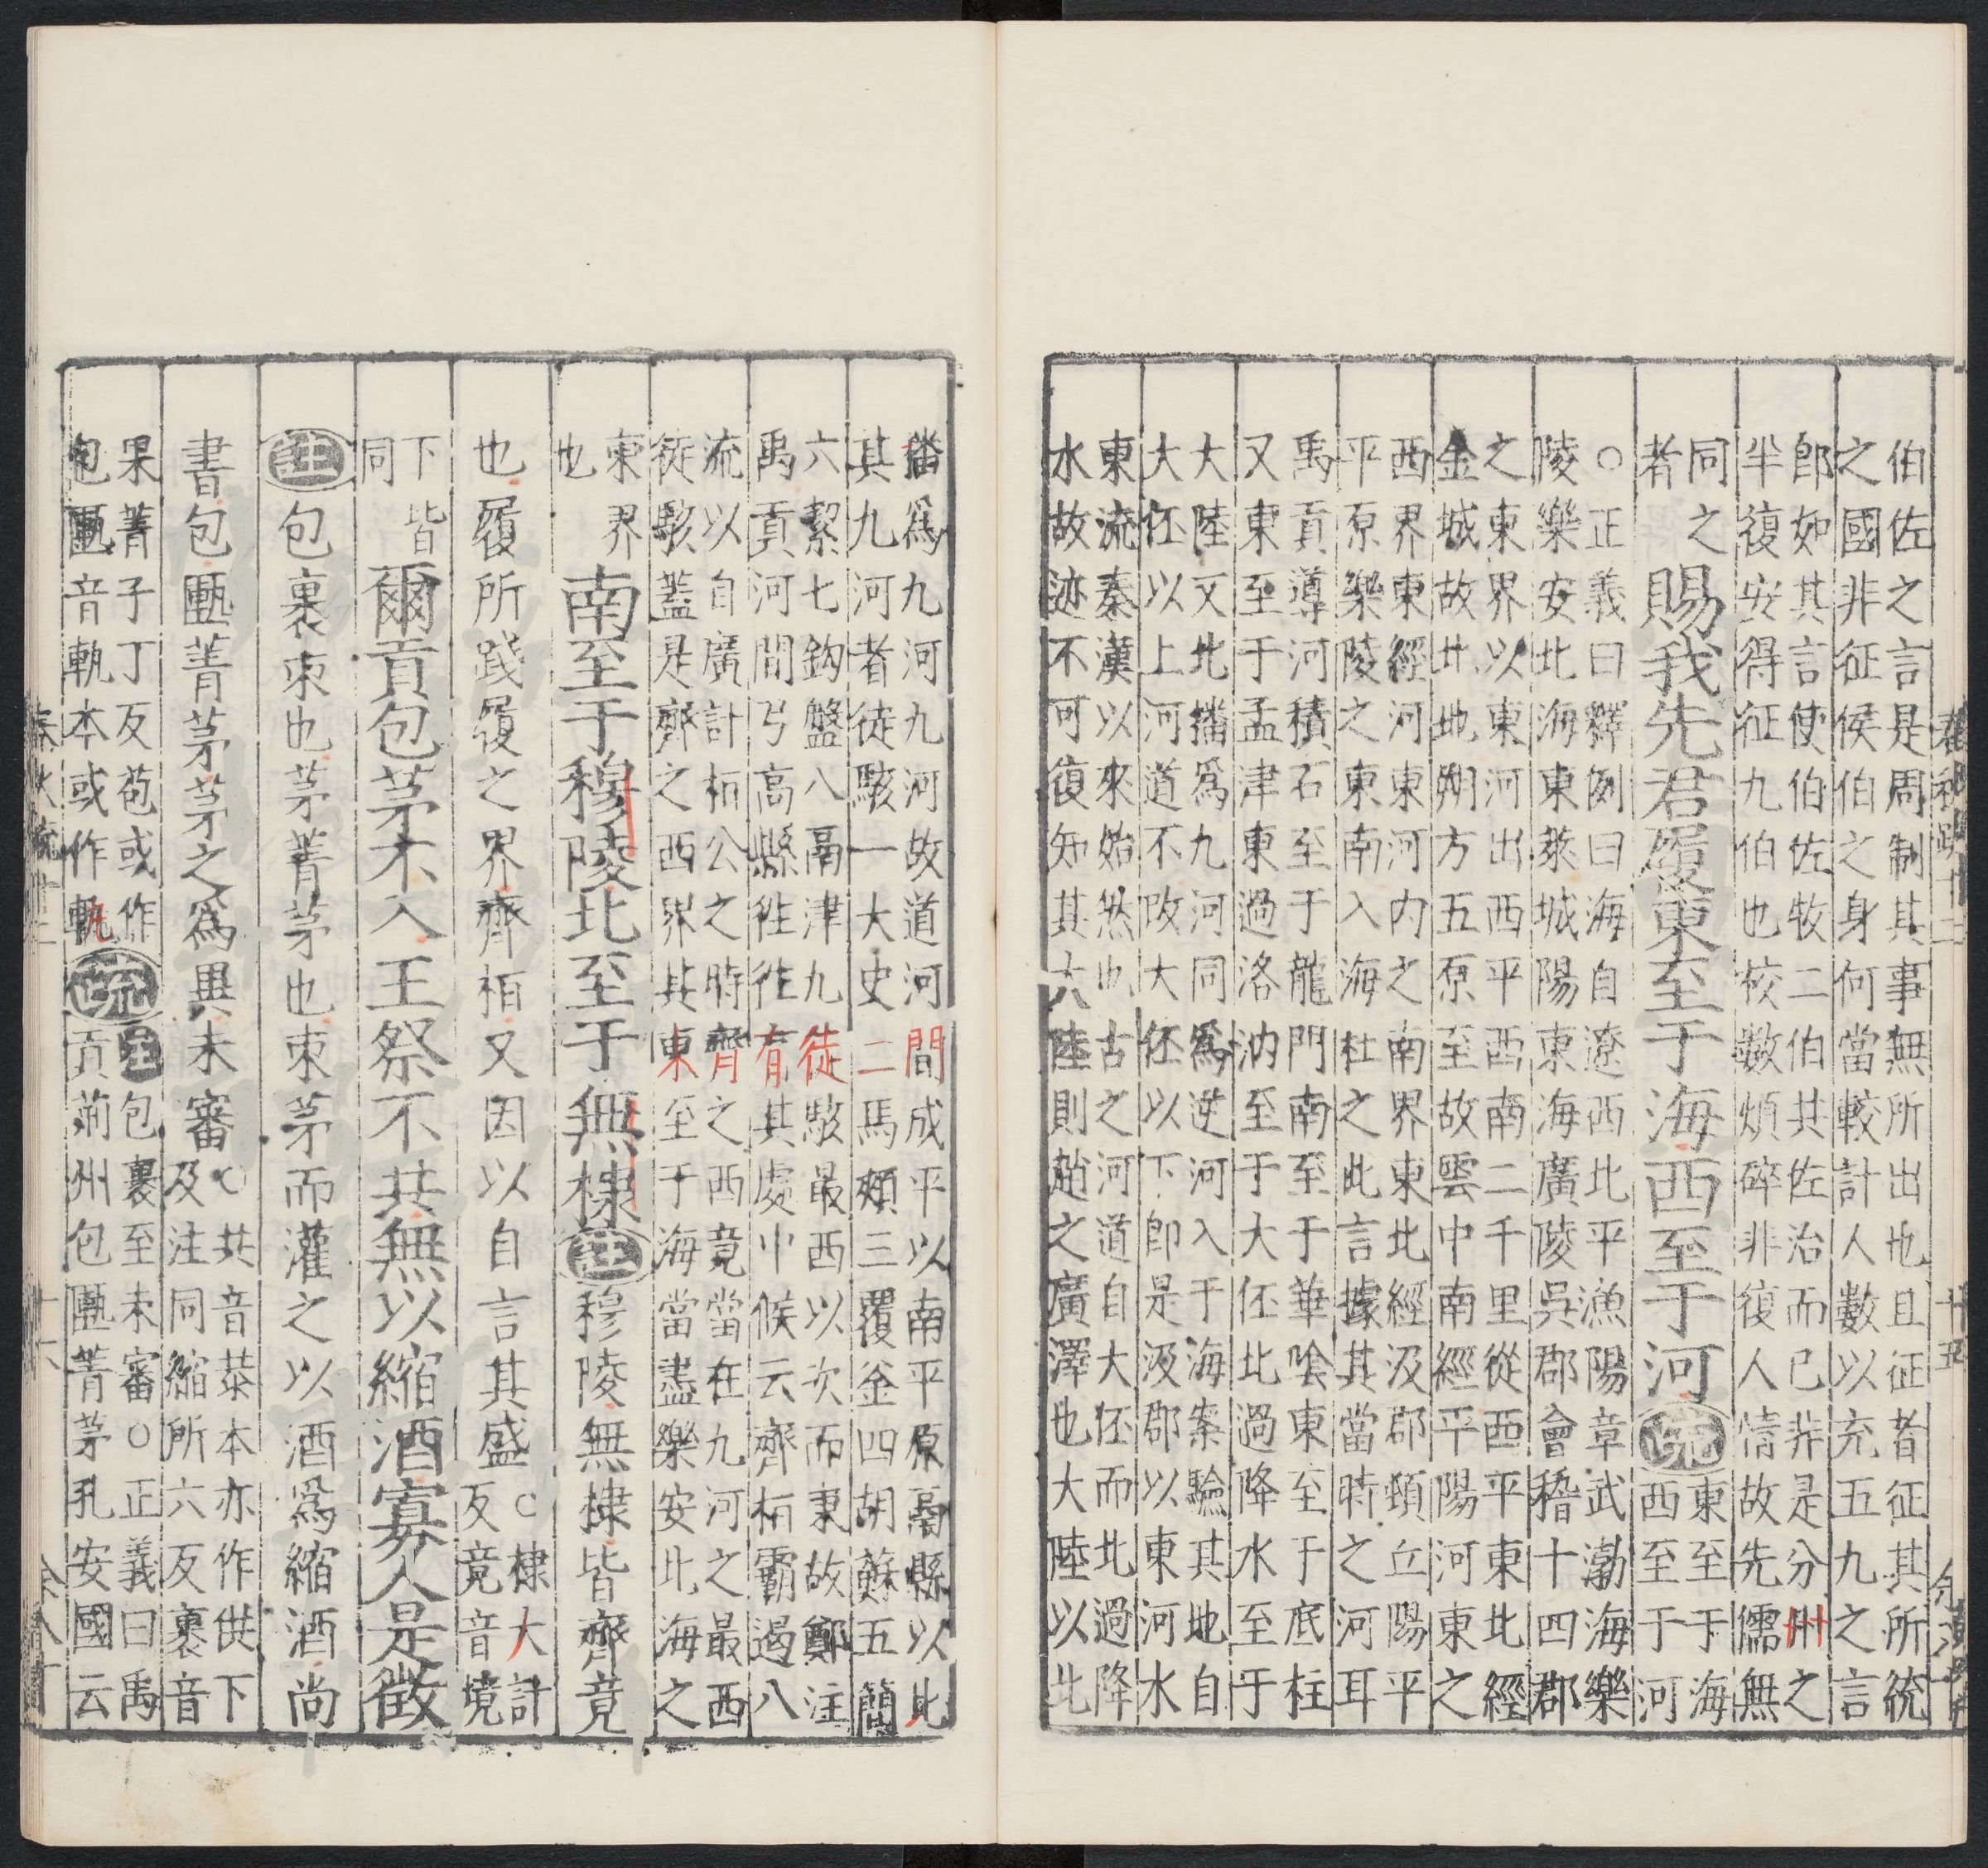 伯佐之言是周制其事無所出也且征者征其所統
之國非征侯伯之身何當較計人數以充五九之言
即如其言使伯佐牧二伯共佐治而已非是分州之
半復安得征九伯也校數煩碎非復人情故先儒無
同之
者
賜我先君履東至于海西至于河
疏
東至于海
西至于河
○正義曰釋例曰海自遼西北平漁陽章武渤海樂
陵樂安北海東萊城陽東海廣陵吳郡會稽十四郡
之東界以東河出西平西南二千里從西平東北經
金城故北地朔方五原至故雲中南經平陽河東之
西界東經河東河內之南界東北經汲郡頓丘陽平
平原樂陵之東南入海杜之此言據其當時之河耳
禹貢導河積石至于龍門南至于華陰東至于底柱
又東至于孟津東過洛汭至于大伾北過降水至于
大陸又北播為九河同為逆河入于海案驗其地自
大伾以上河道不改大伾以下即是汲郡以東河水
東流秦漢以來始然也古之河道自大伾而北過降
水故迹不可復知其大陸則趙之廣澤也大陸以北
播爲九河九河故道河間成平以南平原鬲縣以北
其九河者徒駭一大史二馬頰三覆釜四胡蘇五簡
六絜七鈎盤八鬲津九徒駭最西以次而東故鄭注
禹貢河間弓高縣徃徃有其處中候云齊桓霸遏八
流以自廣計桓公之時齊之西竟當在九河之最西
徒駭蓋是齊之西界其東至于海當盡樂安北海之
東界
也
南至于穆陵北至于無棣
註
穆陵無棣皆齊竟
也履所踐履之界齊桓又因以自言其盛
○棣大計
反竟音境
下皆
同
爾貢包茅不入王祭不共無以縮酒寡人是徵
註
包裹束也茅菁茅也束茅而灌之以酒爲縮酒尚
書包匭菁茅茅之爲異未審
○共音恭本亦作供下
及注同縮所六反裹音
果菁子丁反苞或作
包匭音軌本或作軌
疏
註包裹至未審○正義曰禹
貢荊州包匭菁茅孔安國云